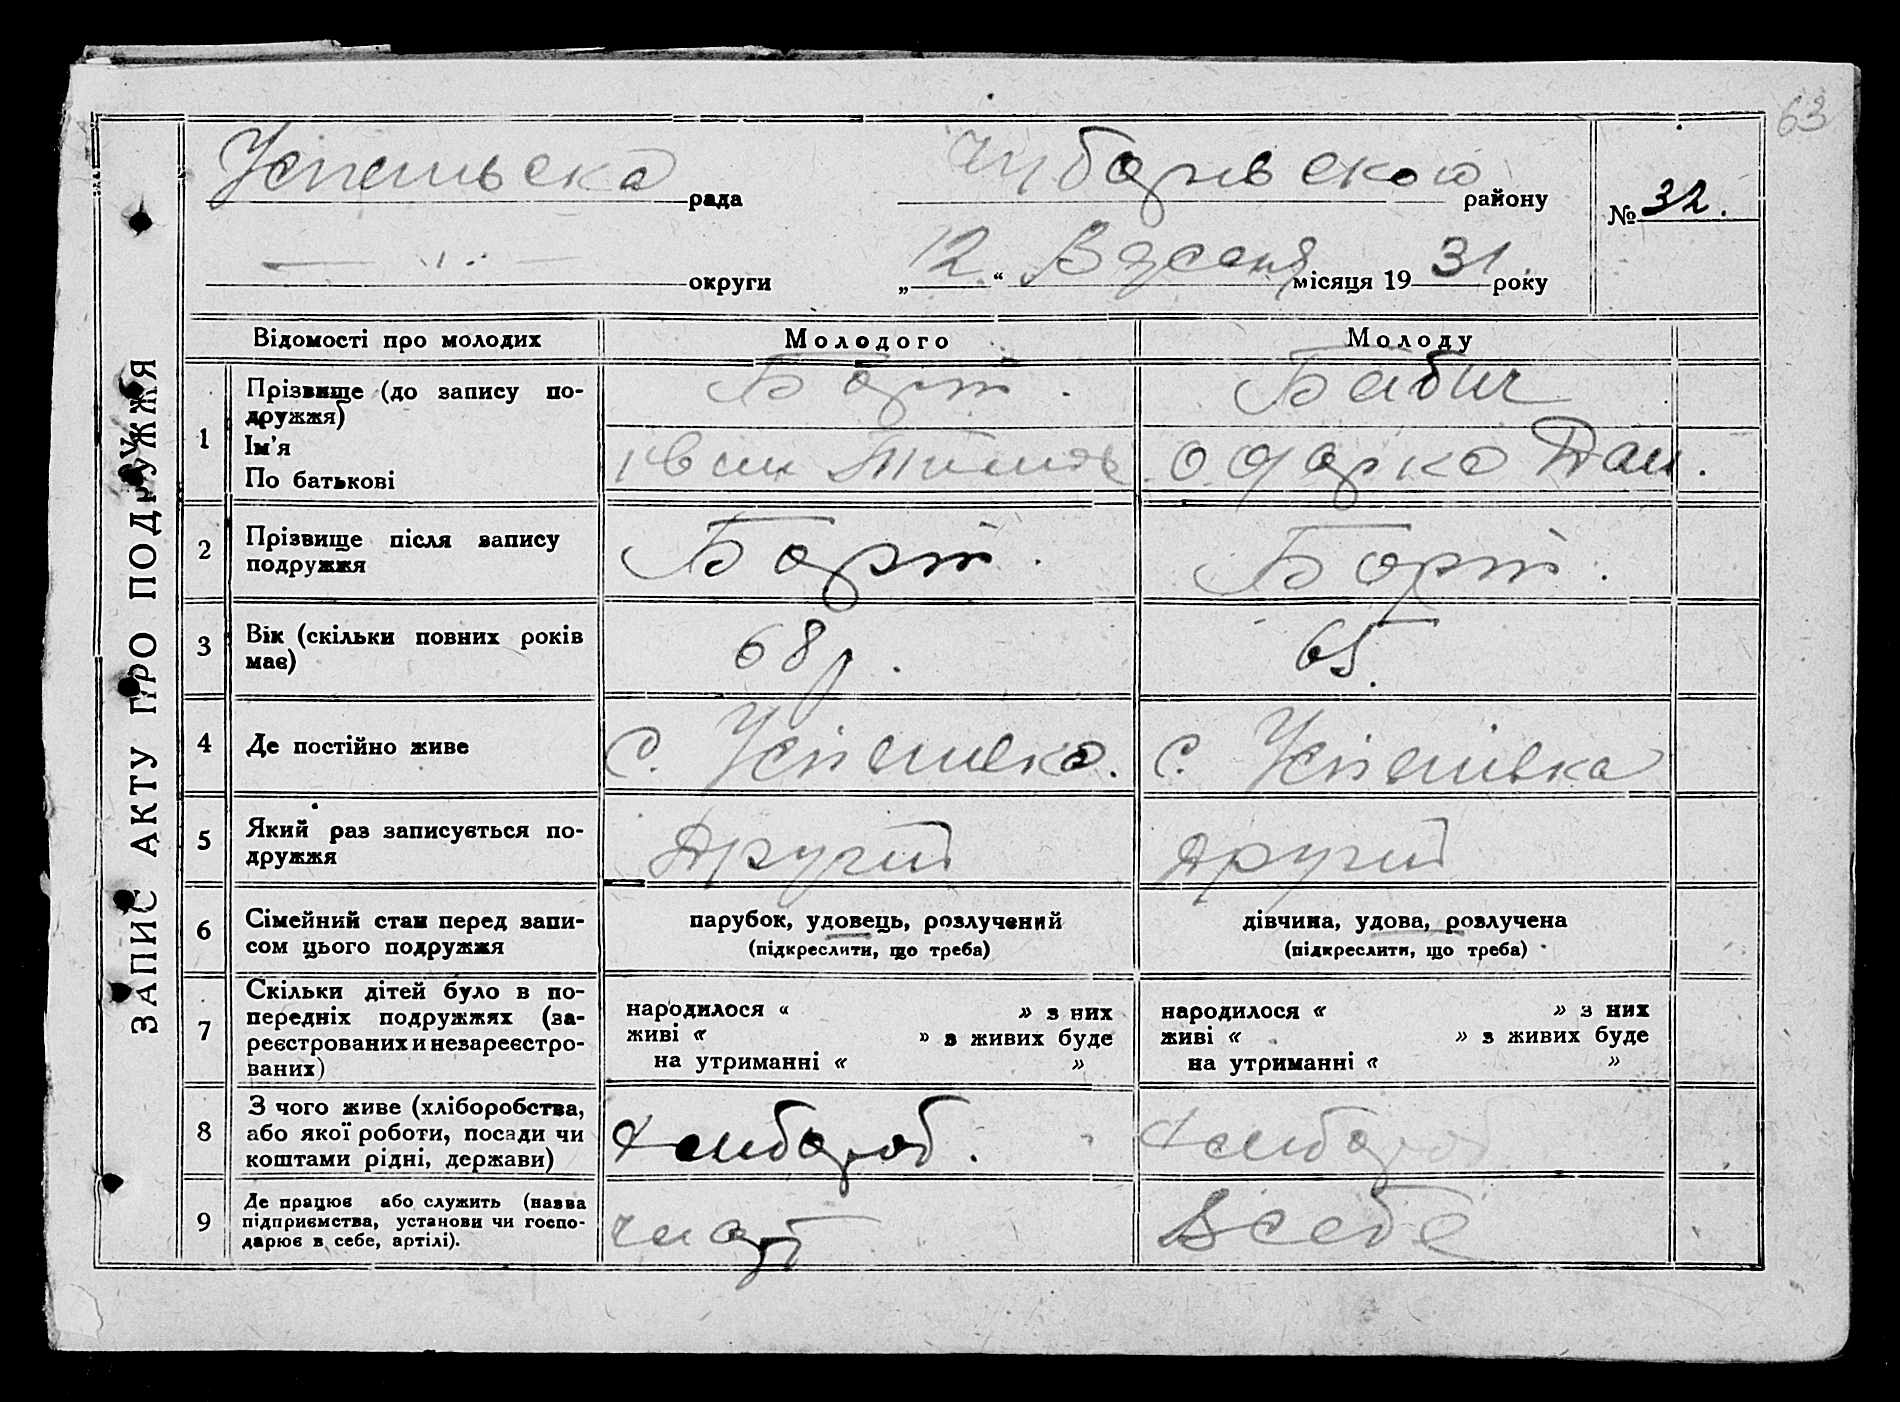 63
ЗАПИС АКТУ ПРО ПОДРУЖЖЯ
Успенівська рада Чубарівського району
№ 32.
— " — округи „12“ Вересня місяця 1931 року
Відомості про молодих Молодого Молоду
1 Прізвище (до запису по-
дружжя) Борт. Бабич
Ім'я
По батькові Іван Тимов. Одарка Дан.
2 Прізвище після запису
подружжя Борт. Борт.
3 Вік (скільки повних років
має) 68 р. 65.
4 Де постійно живе с. Успенівка. с. Успенівка
5 Який раз записується по-
дружжя другий другий
6 Сімейний стан перед запи-
сом цього подружжя
парубок, удовець, розлучений
(підкреслити, що треба)
дівчина, удова, розлучена
(підкреслити, що треба)
7 Скільки дітей було в по-
передніх подружжях (за-
реєстрованих и незареєстро-
ваних)
народилося « » з них
живі « » з живих буде
на утриманні « »
народилося « » з них
живі « » з живих буде
на утриманні « »
8 З чого живе (хліборобства,
або якої роботи, посади чи
коштами рідні, держави)
хлібороб. хлібороб
9 Де працює або служить (назва
підприємства, установи чи госпо-
дарює в себе, артілі).
в себе